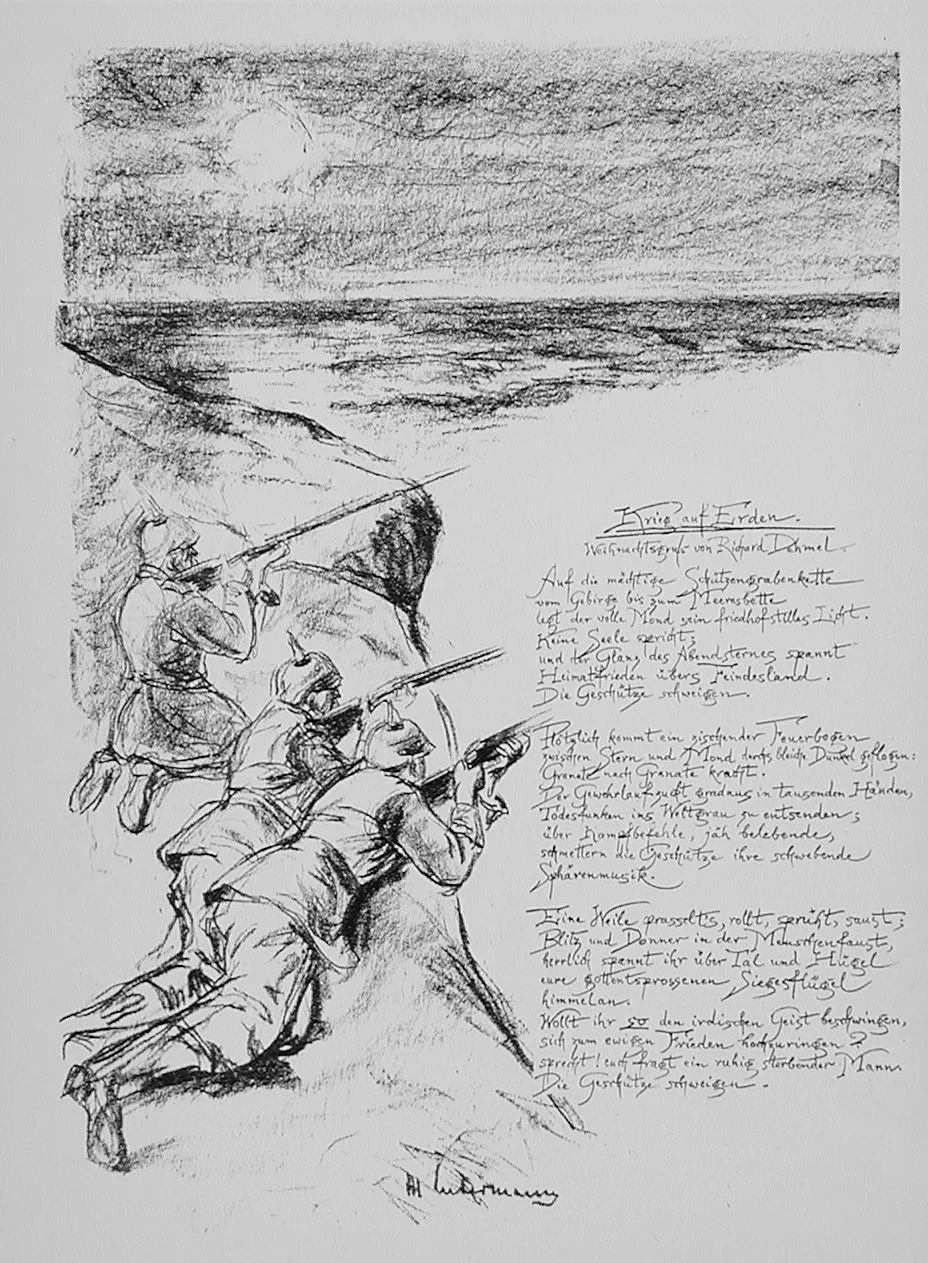 Krieg auf Erden.
Weihnachtsgruß von Richard Dehmel.
Auf die mächtige Schützengrabenkette
vom Gebirge bis zum Meeresbette
legt der volle Mond sein friedhofstilles Licht.
Keine Seele spricht;
und der Glanz des Abendsternes spannt
Heimatfrieden übers Feindesland.
Die Geschütze schweigen.
Plötzlich kommt ein zischender Feuerbogen
zwischen Stern und Mond durchs bleiche Dunkel geflogen:
Granate nach Granate kracht.
Der Gewehrlauf zuckt gradaus in tausenden Händen,
Todesfunken ins Weltgrau zu entsenden;
über Kampfbefehle, jäh belebende,
schmettern die Geschütze ihre schwebende
Sphärenmusik.
Eine Weile prasselt's, rollt, sprüht, saust;
Blitz und Donner in der Menschenfaust,
herrlich spannt ihr über Tal und Hügel
eure gottentsprossenen Siegesflügel
himmelan.
Wollt ihr so den irdischen Geist beschwingen,
sich zum ewigen Frieden hochzuringen?
sprecht! euch fragt ein ruhig sterbender Mann.
Die Geschütze schweigen.